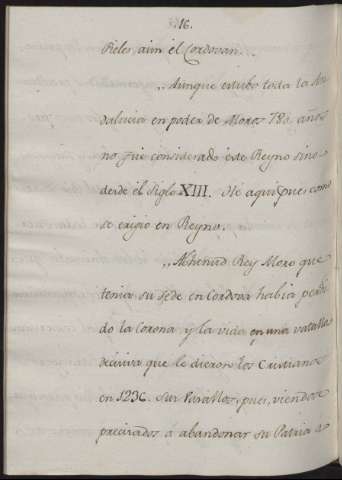 16.
Pieles, aun el Cordovan...
,,Aunque estubo toda la An
dalucia en poder de Moros 780. años
no fue considerado este Reyno sino
desde el Siglo XIII. He aqui pues como
se erigio en Reyno.
,,Alhenad Rey Moro que
tenia su Sede en Cordova habia perdi
do la Corona y la vida en una vatalla
decisiva que le dieron los Cristianos
en 1236. Sus Vasallos, pues, viendose
precisados à abandonar su Patria à